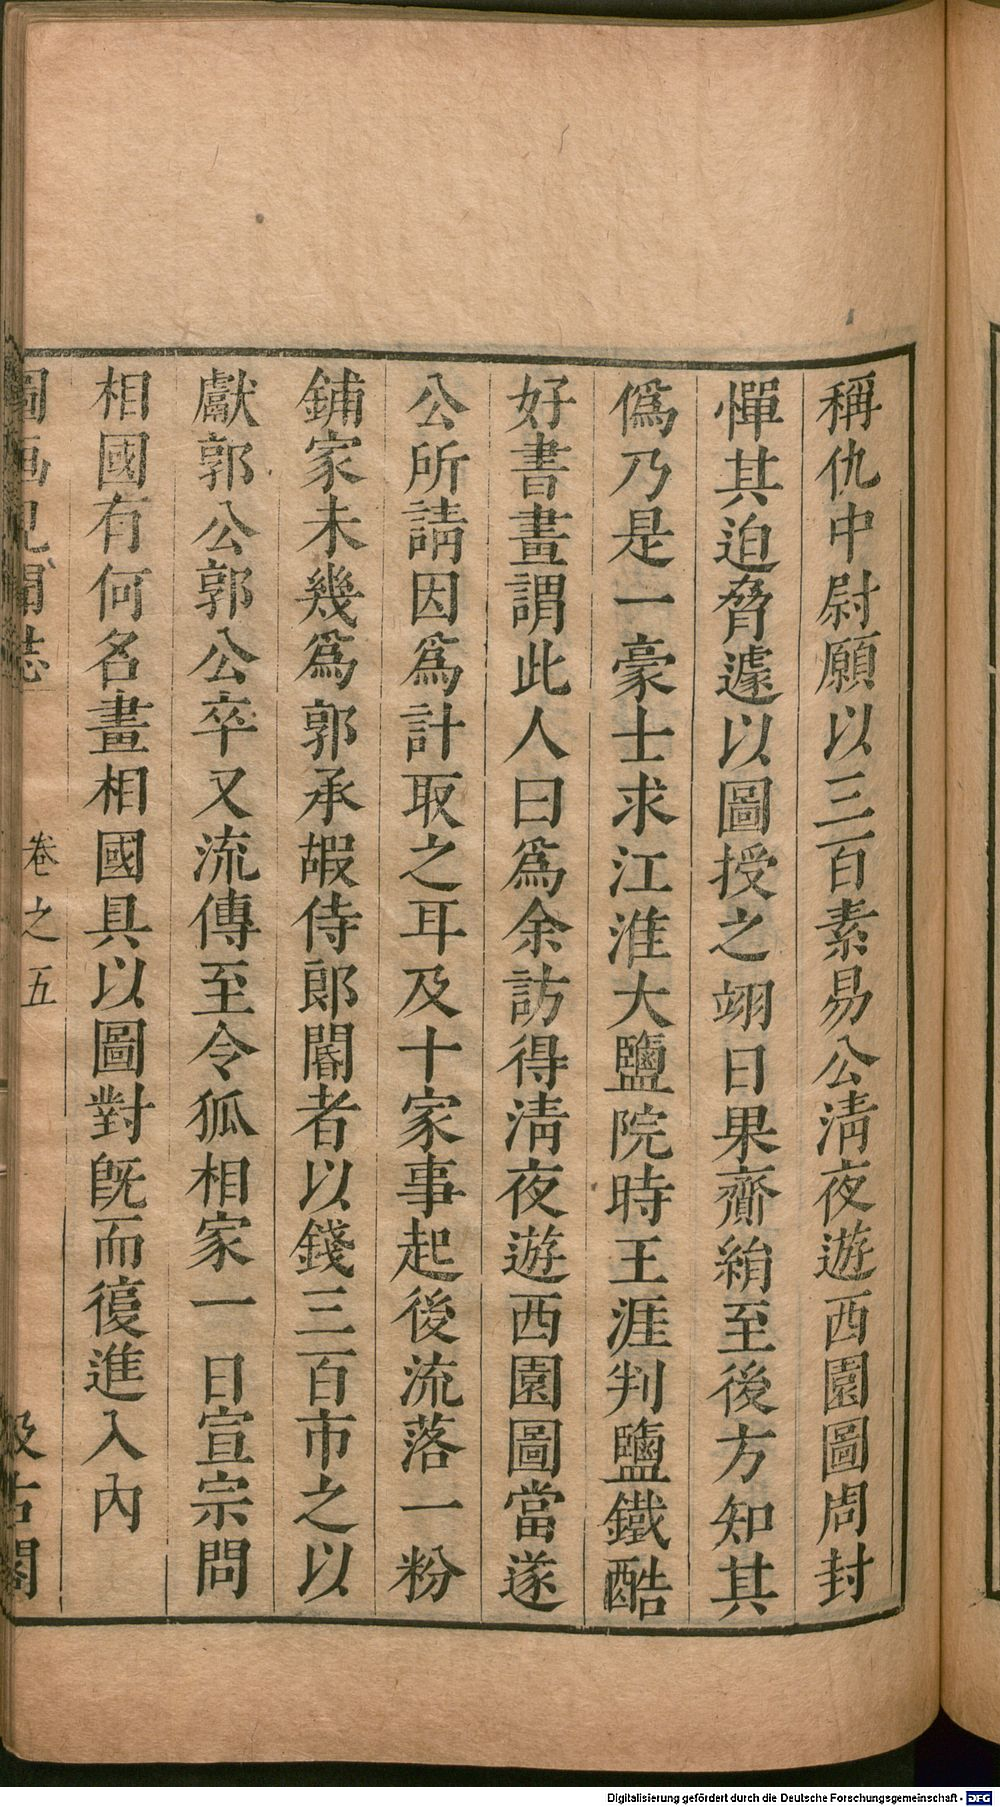 稱仇中尉願以三百素易公淸夜遊西園圖周封
憚其迫脅遽以圖授之翊日果齎絹至後方知其
僞乃是一豪士求江淮大鹽院時王涯判鹽鐵酷
好書畫謂此人曰爲余訪得淸夜遊西園圖當遂
公所請因爲計取之耳及十家事起後流落一粉
鋪家未幾爲郭承嘏侍郎閽者以錢三百市之以
獻郭公郭公卒又流傳至令狐相家一日宣宗問
相國有何名畫相國具以圖對旣而復進入內
圖画見聞誌 卷之五 汲古閣
Digitalisierung gefördert durch die Deutsche Forschungsgemeinschaft - DFG